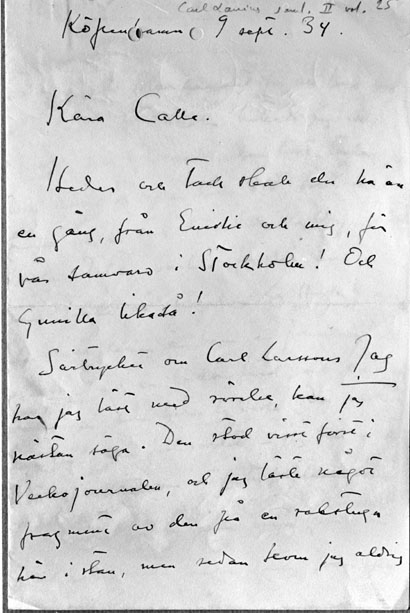 Carl Laurins saml. II vol. 25
Köpenhamn 9 sept. 34.
Kära Calle.
Heder och tack skall du ha än
en gång, från och mig, för
vår samvaro i Stockholm! Och
Gunilla likaså!
Särtrycket om Carl Larssons Jag
har jag läst med rörelse, kan jag
nästan säga. Den stod visst först i
Veckojournalen, och jag läste något
fragment av den på en rakstuga
här i stan, men sedan kom jag aldrig